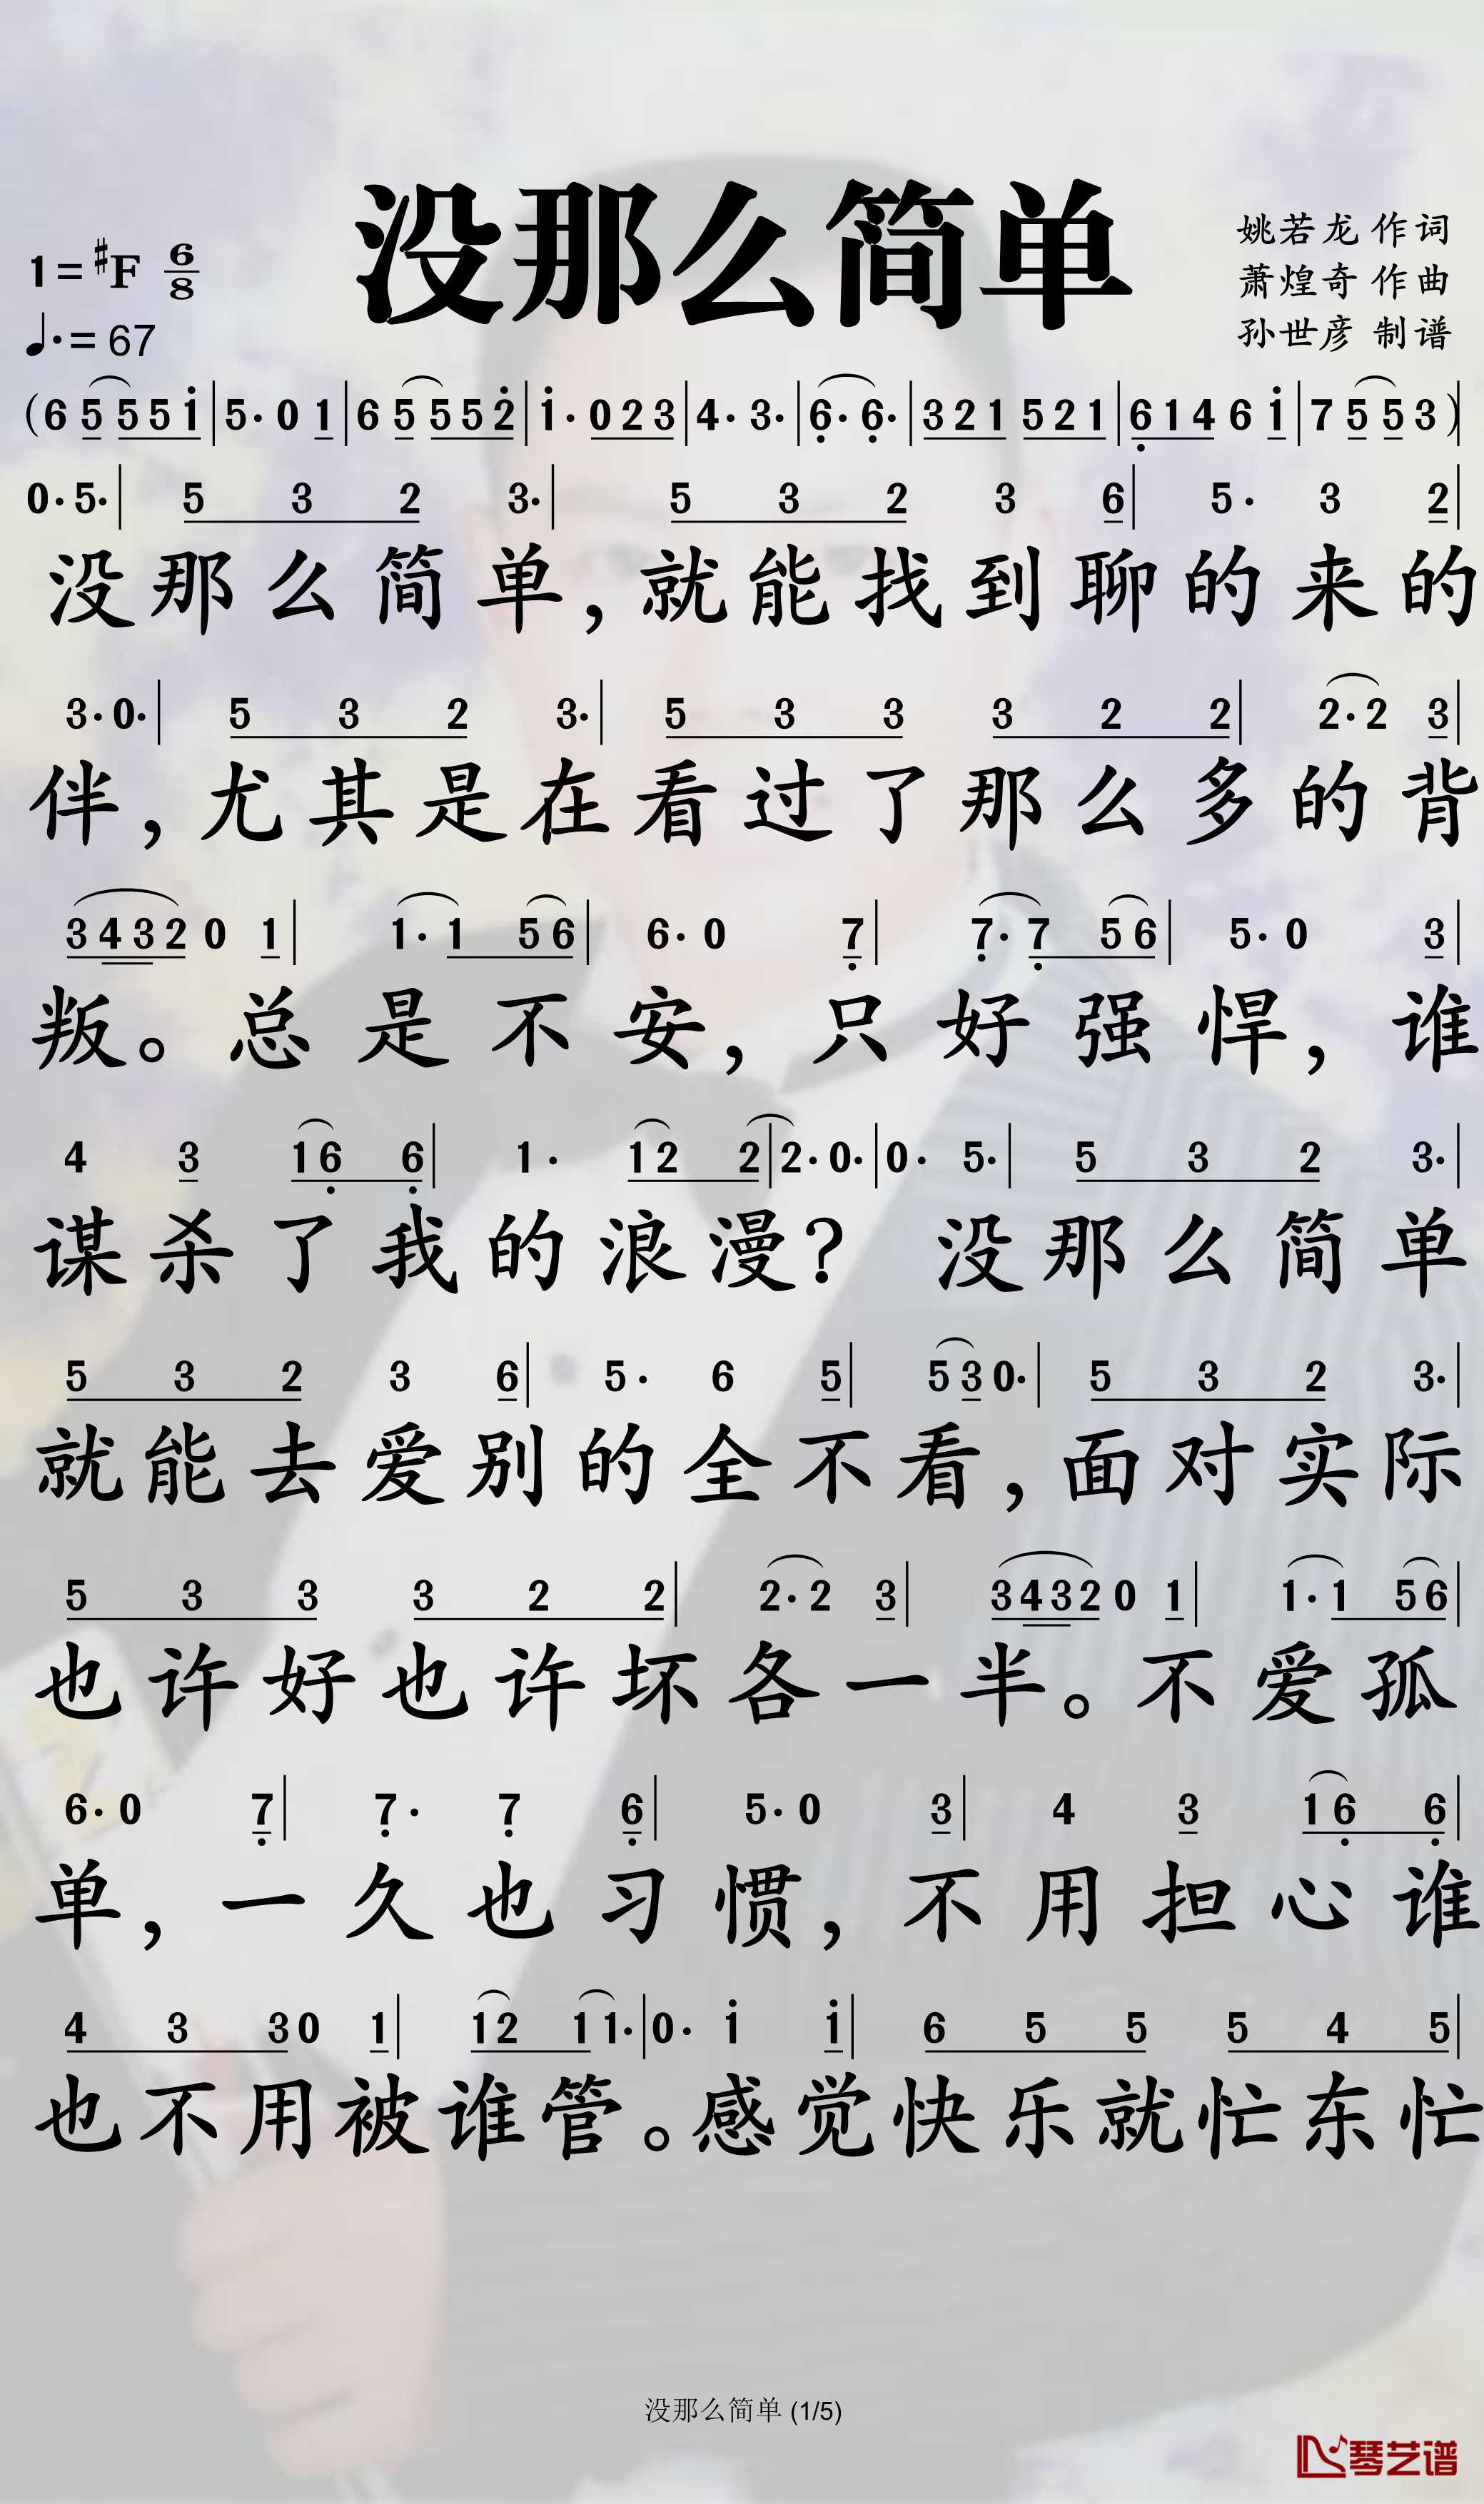 没那么简单
1=#F 6/8
♩.=67
姚若龙 作词
萧煌奇 作曲
孙世彦 制谱
(6 5 5 5 i|5· 0 1|6 5 5 5 2̇|i· 0 2 3|4· 3·|6̣· 6̣·|3 2 1 5 2 1|6̣ 1 4 6 i|7 5 5 3)
0· 5·|5 3 2 3·|5 3 2 3 6|5· 3 2|
没那么简单,就能找到聊的来的
3· 0·|5 3 2 3·|5 3 3 3 2 2|2· 2 3|
伴,尤其是在看过了那么多的背
3 4 3 2 0 1|1· 1 5 6|6· 0 7̣|7̣· 7̣ 5 6|5· 0 3|
叛。总是不安,只好强悍,谁
4 3 1 6̣ 6̣|1· 1 2 2|2· 0·|0· 5·|5 3 2 3·|
谋杀了我的浪漫?没那么简单
5 3 2 3 6|5· 6 5|5 3 0·|5 3 2 3·|
就能去爱别的全不看,面对实际
5 3 3 3 2 2|2· 2 3|3 4 3 2 0 1|1· 1 5 6|
也许好也许坏各一半。不爱孤
6· 0 7̣|7̣· 7̣ 6̣|5· 0 3|4 3 1 6̣ 6̣|
单,一久也习惯,不用担心谁
4 3 3 0 1|1 2 1 1·|0· i i|6 5 5 5 4 5|
也不用被谁管。感觉快乐就忙东忙
没那么简单 (1/5)
琴艺谱